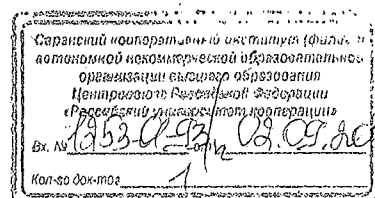 Саранский кооперативный институт (филиал)
автономной некоммерческой образовательной
организации высшего образования
Центросоюза Российской Федерации
«Российский университет кооперации»
Вх. № 1253-01-93/ от 02.09.20
Кол-во док-тов 1